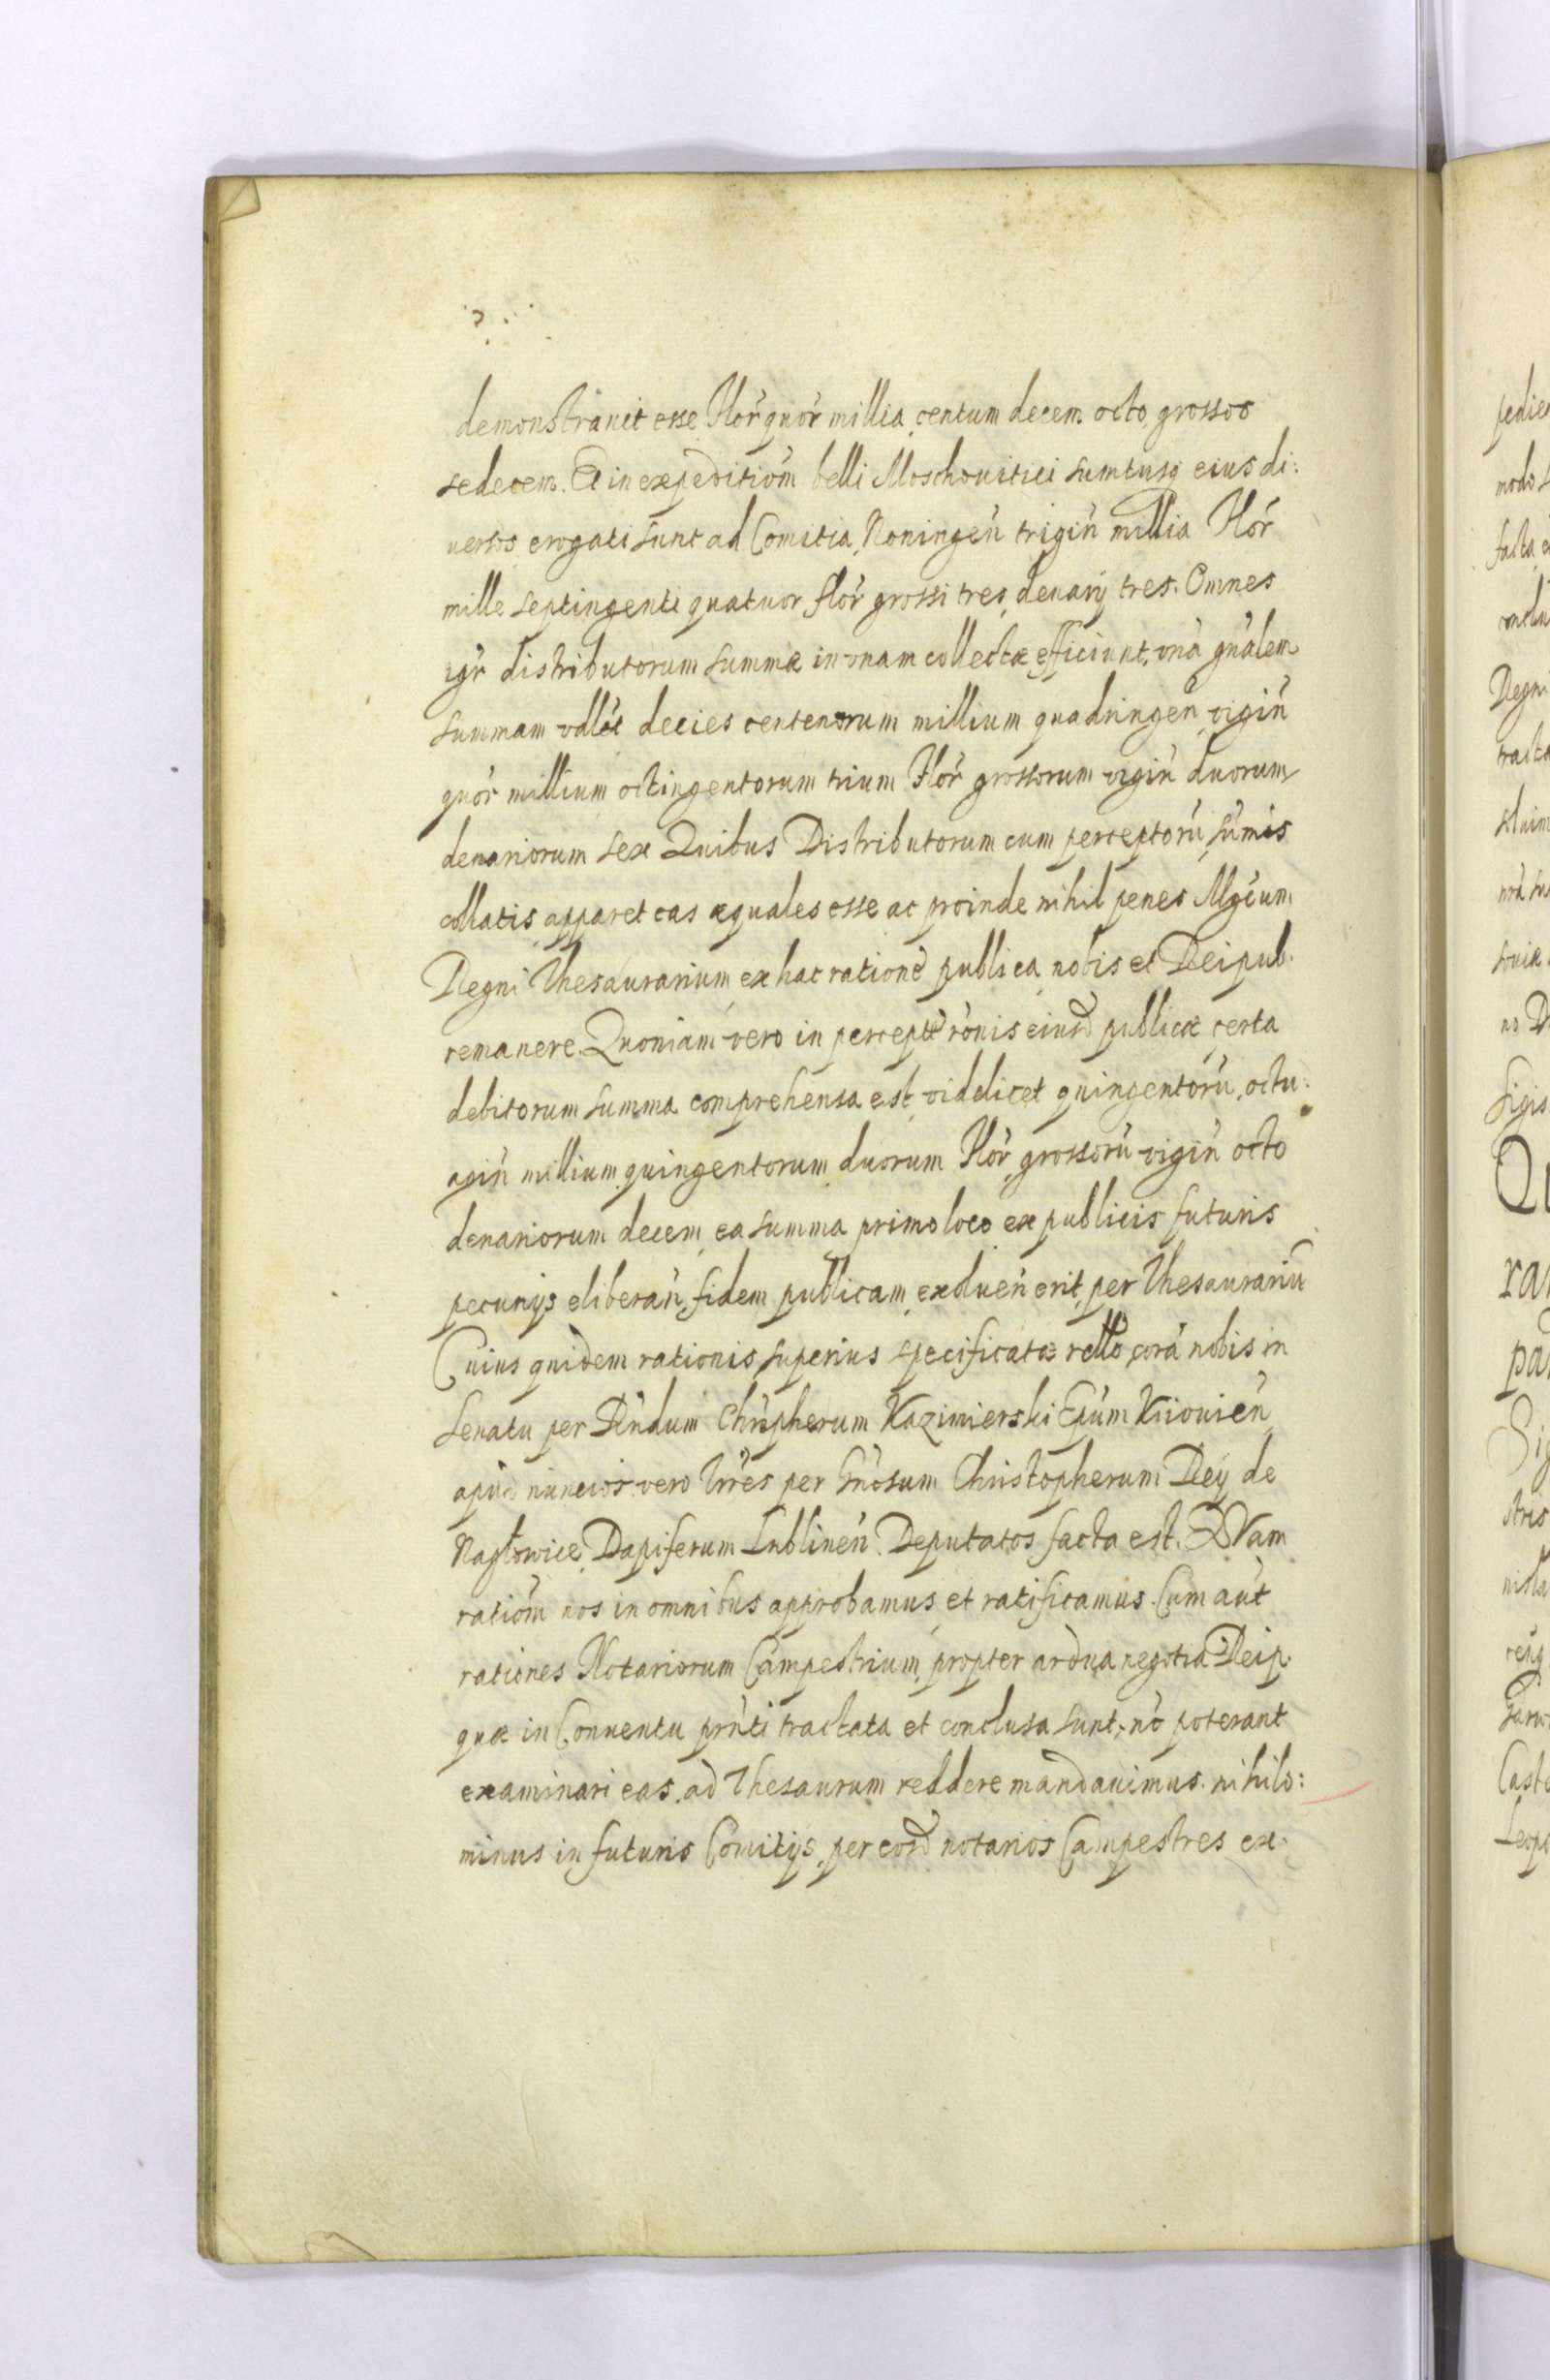 demonstrauit esse Flor̃ quor̃ millia centum decem octo, grossos
sedecem. Et in expeditiom̃ belli Moschouitici sumtusq eius di:
uersos erogati sunt ad Comitia, Noningeñ trigiñ millia Flor̃
mille septingenti quatuor flor̃ grossi tres, denarij tres. Omnes
igr̃ distributorum summæ in vnam collectæ efficiunt, vnã gñalem
summam vdlct̃ decies centenorum millium quadringeñ vigiñ
quor̃ millium octingentorum trium Flor̃ grossorum vigiñ duorum
denariorum sex Quibus Distributorum cum perceptorũ sũmis
collatis apparet eas æquales esse ac proinde nihil penes Mgcũm
Regni Thesaurarium ex hac ratione publica nobis et Reipub.
remanere. Quoniam vero in percepta rõnis eiusd publicæ certa
debitorum summa comprehensa est videlicet quingentorũ, octu:
agiñ millium quingentorum duorum Flor̃ grossorũ vigiñ octo
denariorum decem, ea summa primo loco ex publicis futuris
pecunijs eliberañ fidem publicam exoluen̄ erit per Thesaurariũ
Cuius quidem rationis superius specificatæ rello corã nobis in
Senatu per Rñdum Chrispherum Kazimierski Epũm Kiiouieñ
apud nuncios vero Trr̃es per Gñosum Christopherum Rey de
Naglowice Dapiferum Lublineñ Deputatos facta est. QVam
ratiom̃ nos in omnibus approbamus et ratificamus. Cum aũt
rationes Notariorum Campestrium propter ardua negotia Reip.
quæ in Conuentu prñti tractata et conclusa sunt, nõ poterant
examinari eas ad Thesaurum reddere mandauimus. nihilo:
minus in futuris Comitijs, per eosd notarios Campestres ex:
pedien
modo
facta
conclu
Regni
no
Sigis
Qu
ran
pa
Sig
stris
Caste
Leopo